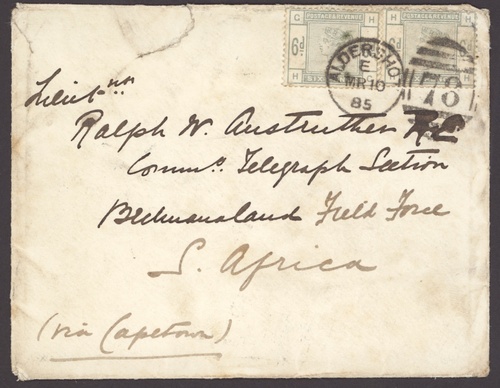 G POSTAGE & REVENUE H
6d.
H SIX
G H
6d.
H
ALDERSHOT
E
MR 10
85
78
Lieut.
Ralph W. Anstruther R.E.
Comm.g Telegraph Section
Bechuanaland Field Force
S. Africa
(via Capetown)